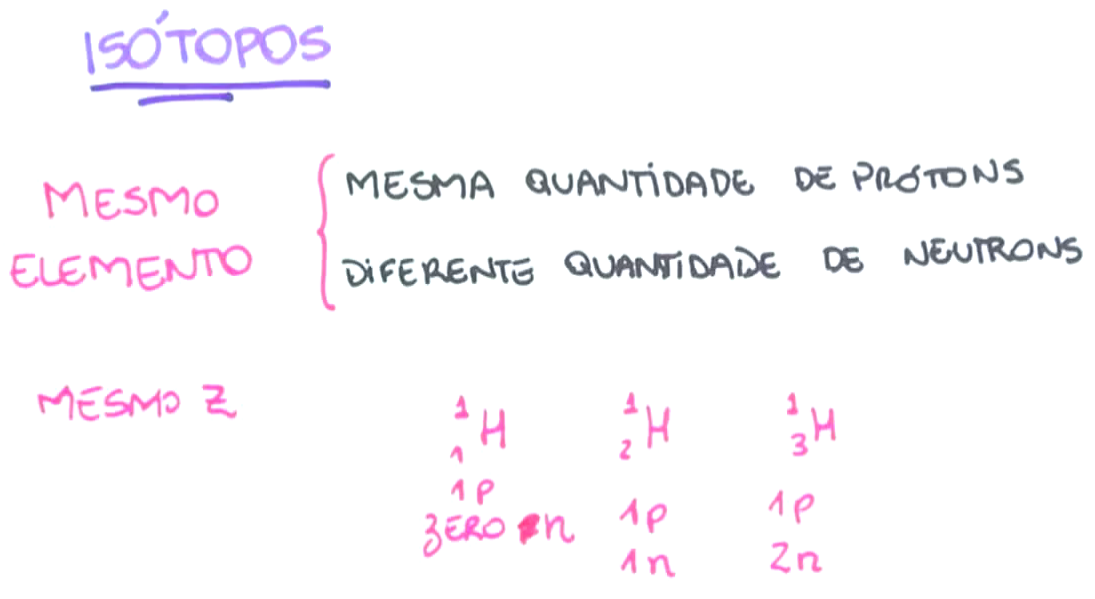 ISÓTOPOS
MESMO
ELEMENTO
MESMA QUANTIDADE DE PRÓTONS
DIFERENTE QUANTIDADE DE NEUTRONS
MESMO Z
1 1 H 1 2 H 1 3 H
1p 1p 1p
ZERO n 1n 2n